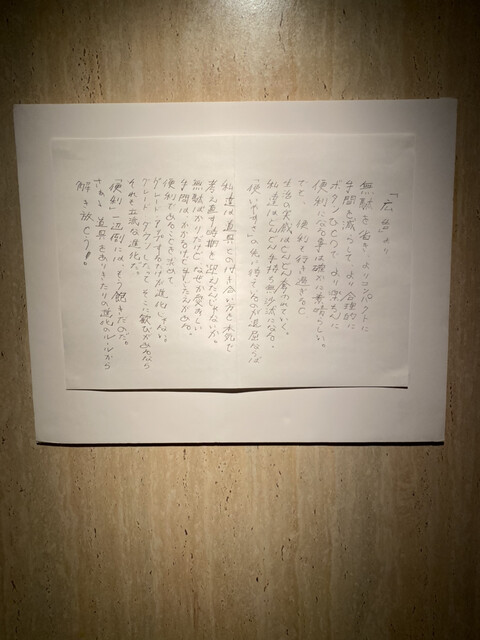 「広告」より
無駄を省き よりコンパクトに
手間を減らして より合理的に
ボタンひとつで より楽ちんに
便利になる事は確かに素晴らしい。
でも、便利も行き過ぎると
生活の実感はどんどん奪われていく。
私達はどんどん手持ち無沙汰になる。
「使いやすさ」の先に待っているのが退屈ならば
私達は道具との付き合い方を本気で
考え直す時期を迎えたんじゃないか。
無駄ばかりだけどなぜか愛おしい
手間はかかるけど手ごたえがある。
便利であることを求めて
グレードアップするだけが進化じゃない。
グレードダウンしたって そこに歓びがあるなら
それも立派な進化だ。
「便利」一辺倒には、もう飽きたのだ。
さあ、道具をありきたりの進化のルールから
解き放とう!。